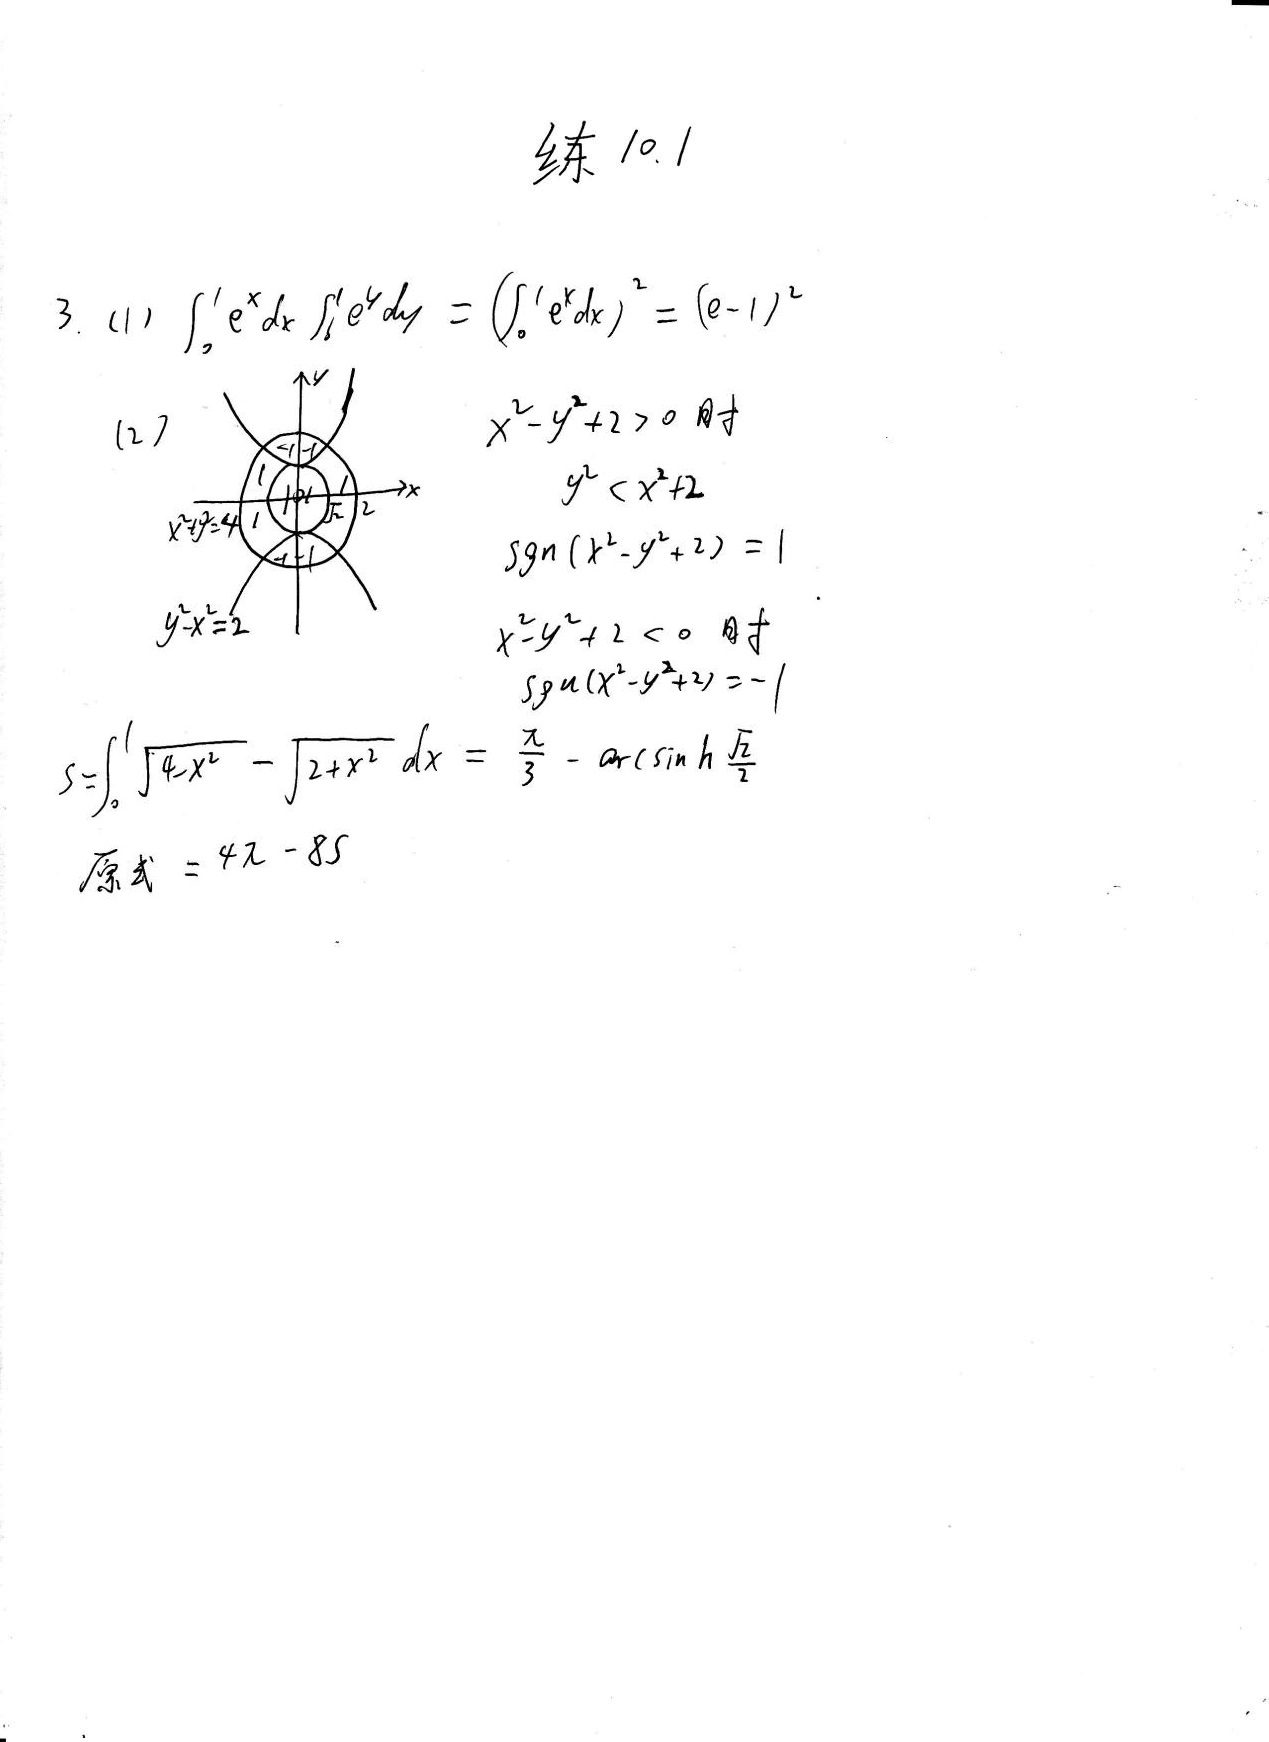 练 10.1
3. (1) ∫₀¹ eˣdx ∫₀¹ eʸdy = (∫₀¹ eˣdx)² = (e-1)²
(2)
y
-1 -1
1 1
1 0 1
x
x²+y²=4 1 √2 2
-1 -1
y²-x²=2
x²-y²+2>0 时
y²<x²+2
sgn(x²-y²+2) = 1
x²-y²+2<0 时
sgn(x²-y²+2) = -1
S=∫₀¹ √(4-x²) - √(2+x²) dx = π/3 - arcsinh √2/2
原式 = 4π - 8S